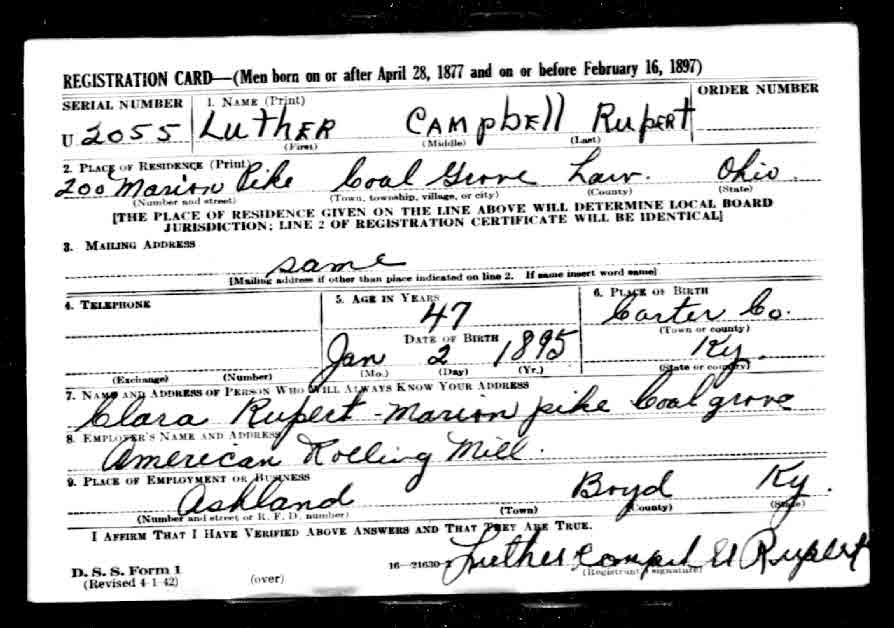 REGISTRATION CARD—(Men born on or after April 28, 1877 and on or before February 16, 1897)
SERIAL NUMBER 1. NAME (Print) ORDER NUMBER
U 2055 LuthER CAMpbEll RupERT
(First) (Middle) (Last)
2. PLACE OF RESIDENCE (Print)
200 Marion Pike Coal Grove Law. Ohio.
(Number and street) (Town, township, village, or city) (County) (State)
[THE PLACE OF RESIDENCE GIVEN ON THE LINE ABOVE WILL DETERMINE LOCAL BOARD
JURISDICTION; LINE 2 OF REGISTRATION CERTIFICATE WILL BE IDENTICAL]
3. MAILING ADDRESS
same
[Mailing address if other than place indicated on line 2. If same insert word same]
4. TELEPHONE 5. AGE IN YEARS 6. PLACE OF BIRTH
47 Carter Co.
DATE OF BIRTH (Town or county)
Jan 2 1895 Ky.
(Exchange) (Number) (Mo.) (Day) (Yr.) (State or country)
7. NAME AND ADDRESS OF PERSON WHO WILL ALWAYS KNOW YOUR ADDRESS
Clara Rupert - Marion pike Coal grove
8. EMPLOYER'S NAME AND ADDRESS
American Rolling Mill.
9. PLACE OF EMPLOYMENT OR BUSINESS
Ashland Boyd Ky.
(Number and street or R. F. D. number) (Town) (County) (State)
I AFFIRM THAT I HAVE VERIFIED ABOVE ANSWERS AND THAT THEY ARE TRUE.
Luther Rupert
D. S. S. Form 1 16—21630-2 (Registrant's signature)
(Revised 4-1-42) (over)